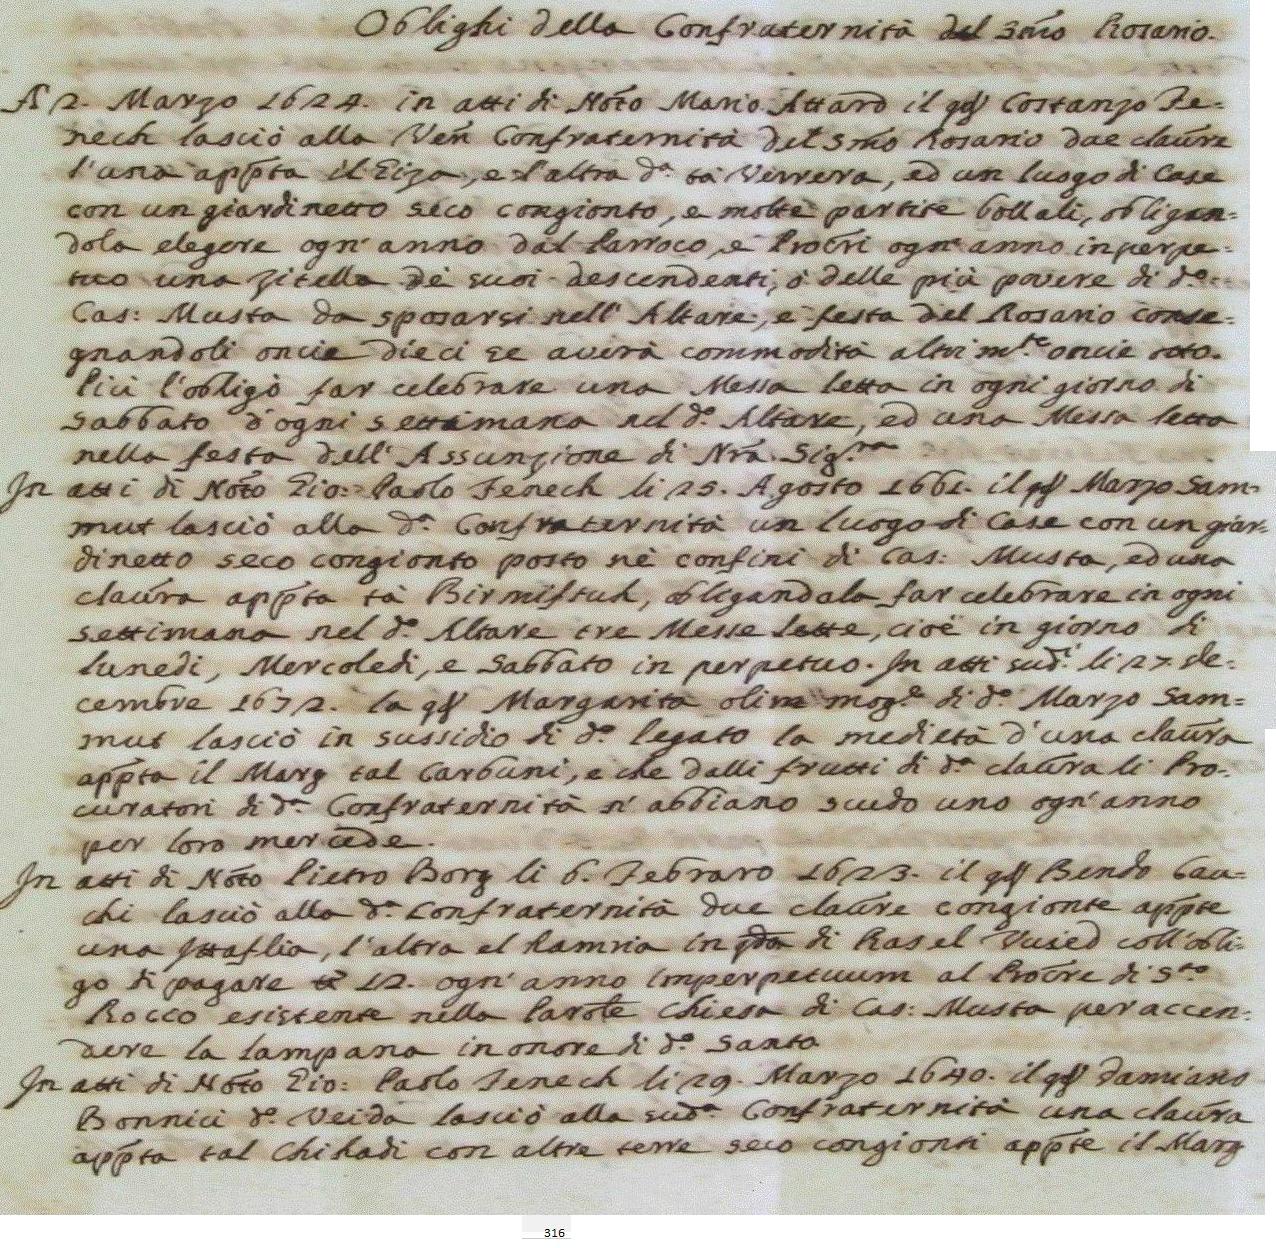 Oblighi della Confraternità del Smo Rosario.
A 2. Marzo 1624. in atti di Noto Mario Attard il qd Costanzo Fe=
nech lasciò alla Ven Confraternità del Smo Rosario due claūre
l'una appta il Eiza, e l'altra da ta Verrera, ed un luogo di Case
con un giardinetto seco congionto, e molte partite bollali, obligan=
dola elegere ogn'anno dal Parroco, e Procri ogn'anno in perpe=
tuo una zitella dè suoi descendenti, ò delle più povere di do
Cas: Musta da sposarsi nell'Altare, e festa del Rosario conse=
gnandoli oncie dieci se averà commodità altrimte oncie otto.
Più l'obligò far celebrare una Messa letta in ogni giorno di
Sabbato d'ogni settimana nel do Altare, ed una Messa letta
nella festa dell'Assunzione di Nra Sigra
In atti di Noto Gio: Paolo Fenech li 25. Agosto 1661. il qd Marzo Sam=
mut lasciò alla da Confraternità un luogo di Case con un giar=
dinetto seco congionto posto nè confini di Cas: Musta, ed una
claūra appta tà Birmiftuh, obligandola far celebrare in ogni
settimana nel do Altare tre Messe lette, cioè in giorno di
lunedì, Mercoledì, e Sabbato in perpetuo. In atti sudi li 27. De=
cembre 1672. la qd Margarita olim moge di do Marzo Sam=
mut lasciò in sussidio di do legato la medietà d'una claūra
appta il Marg tal Carbuni, e che dalli frutti di da claūra li Pro=
curatori di da Confraternità n'abbiano scudo uno ogn'anno
per loro mercede.
In atti di Noto Pietro Borg li 6. Febraro 1623. il qd Bendo Cau=
chi lasciò alla da Confraternità due claūre congionte appte
una Ittaflia, l'altra el Ramria in qda di Ras el Vuied coll'obli=
go di pagare 12. ogn'anno imperpetuum al Procre di Sto
Rocco esistente nella Parole Chiesa di Cas: Musta per accen=
dere la lampana in onore di do Santo
In atti di Noto Gio: Paolo Fenech li 29. Marzo 1640. il qd Damiano
Bonnici do Veida lasciò alla suda Confraternità una claūra
appta tal Chihadi con altre terre seco congionti appte il Marg
316